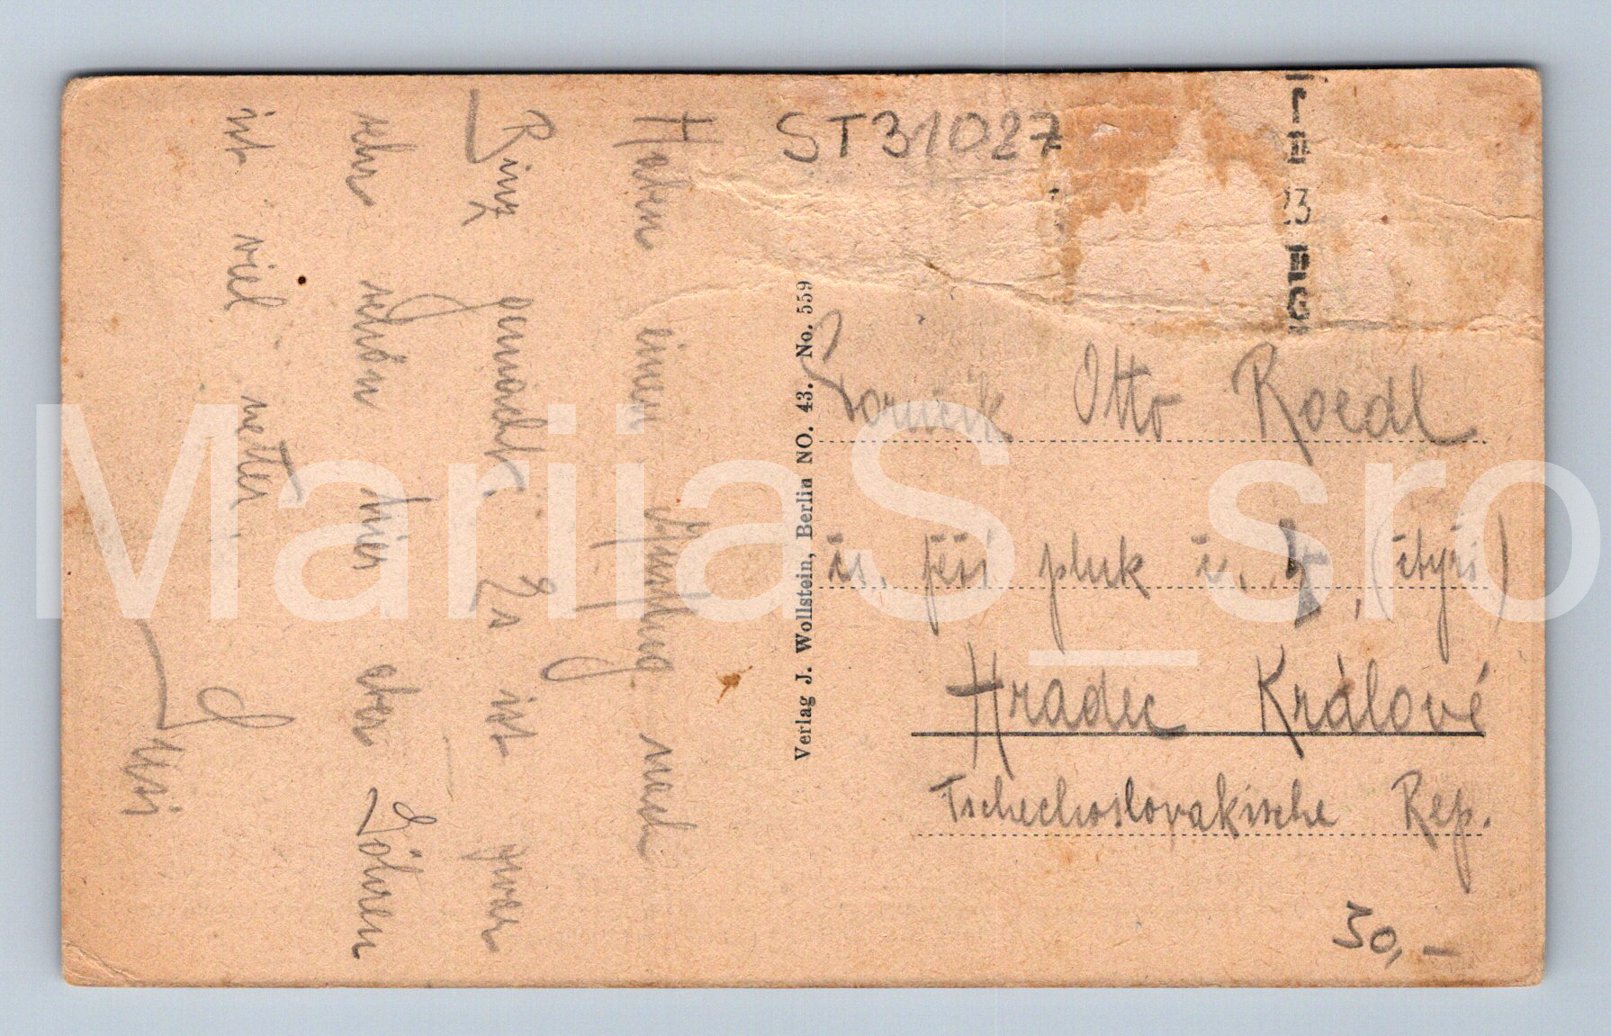 ST31027
Haben einen Ausflug nach
Binz gemacht. Es ist zwar
sehr schön hier aber Göhren
ist viel netter.
Susi
Verlag J. Wollstein, Berlin NO. 43. No. 559
23
Otto Roedl
pěší pluk č. 4, (čtyři)
Hradec Králové
Tschechoslovakische Rep.
30,-
MariiaS_sro